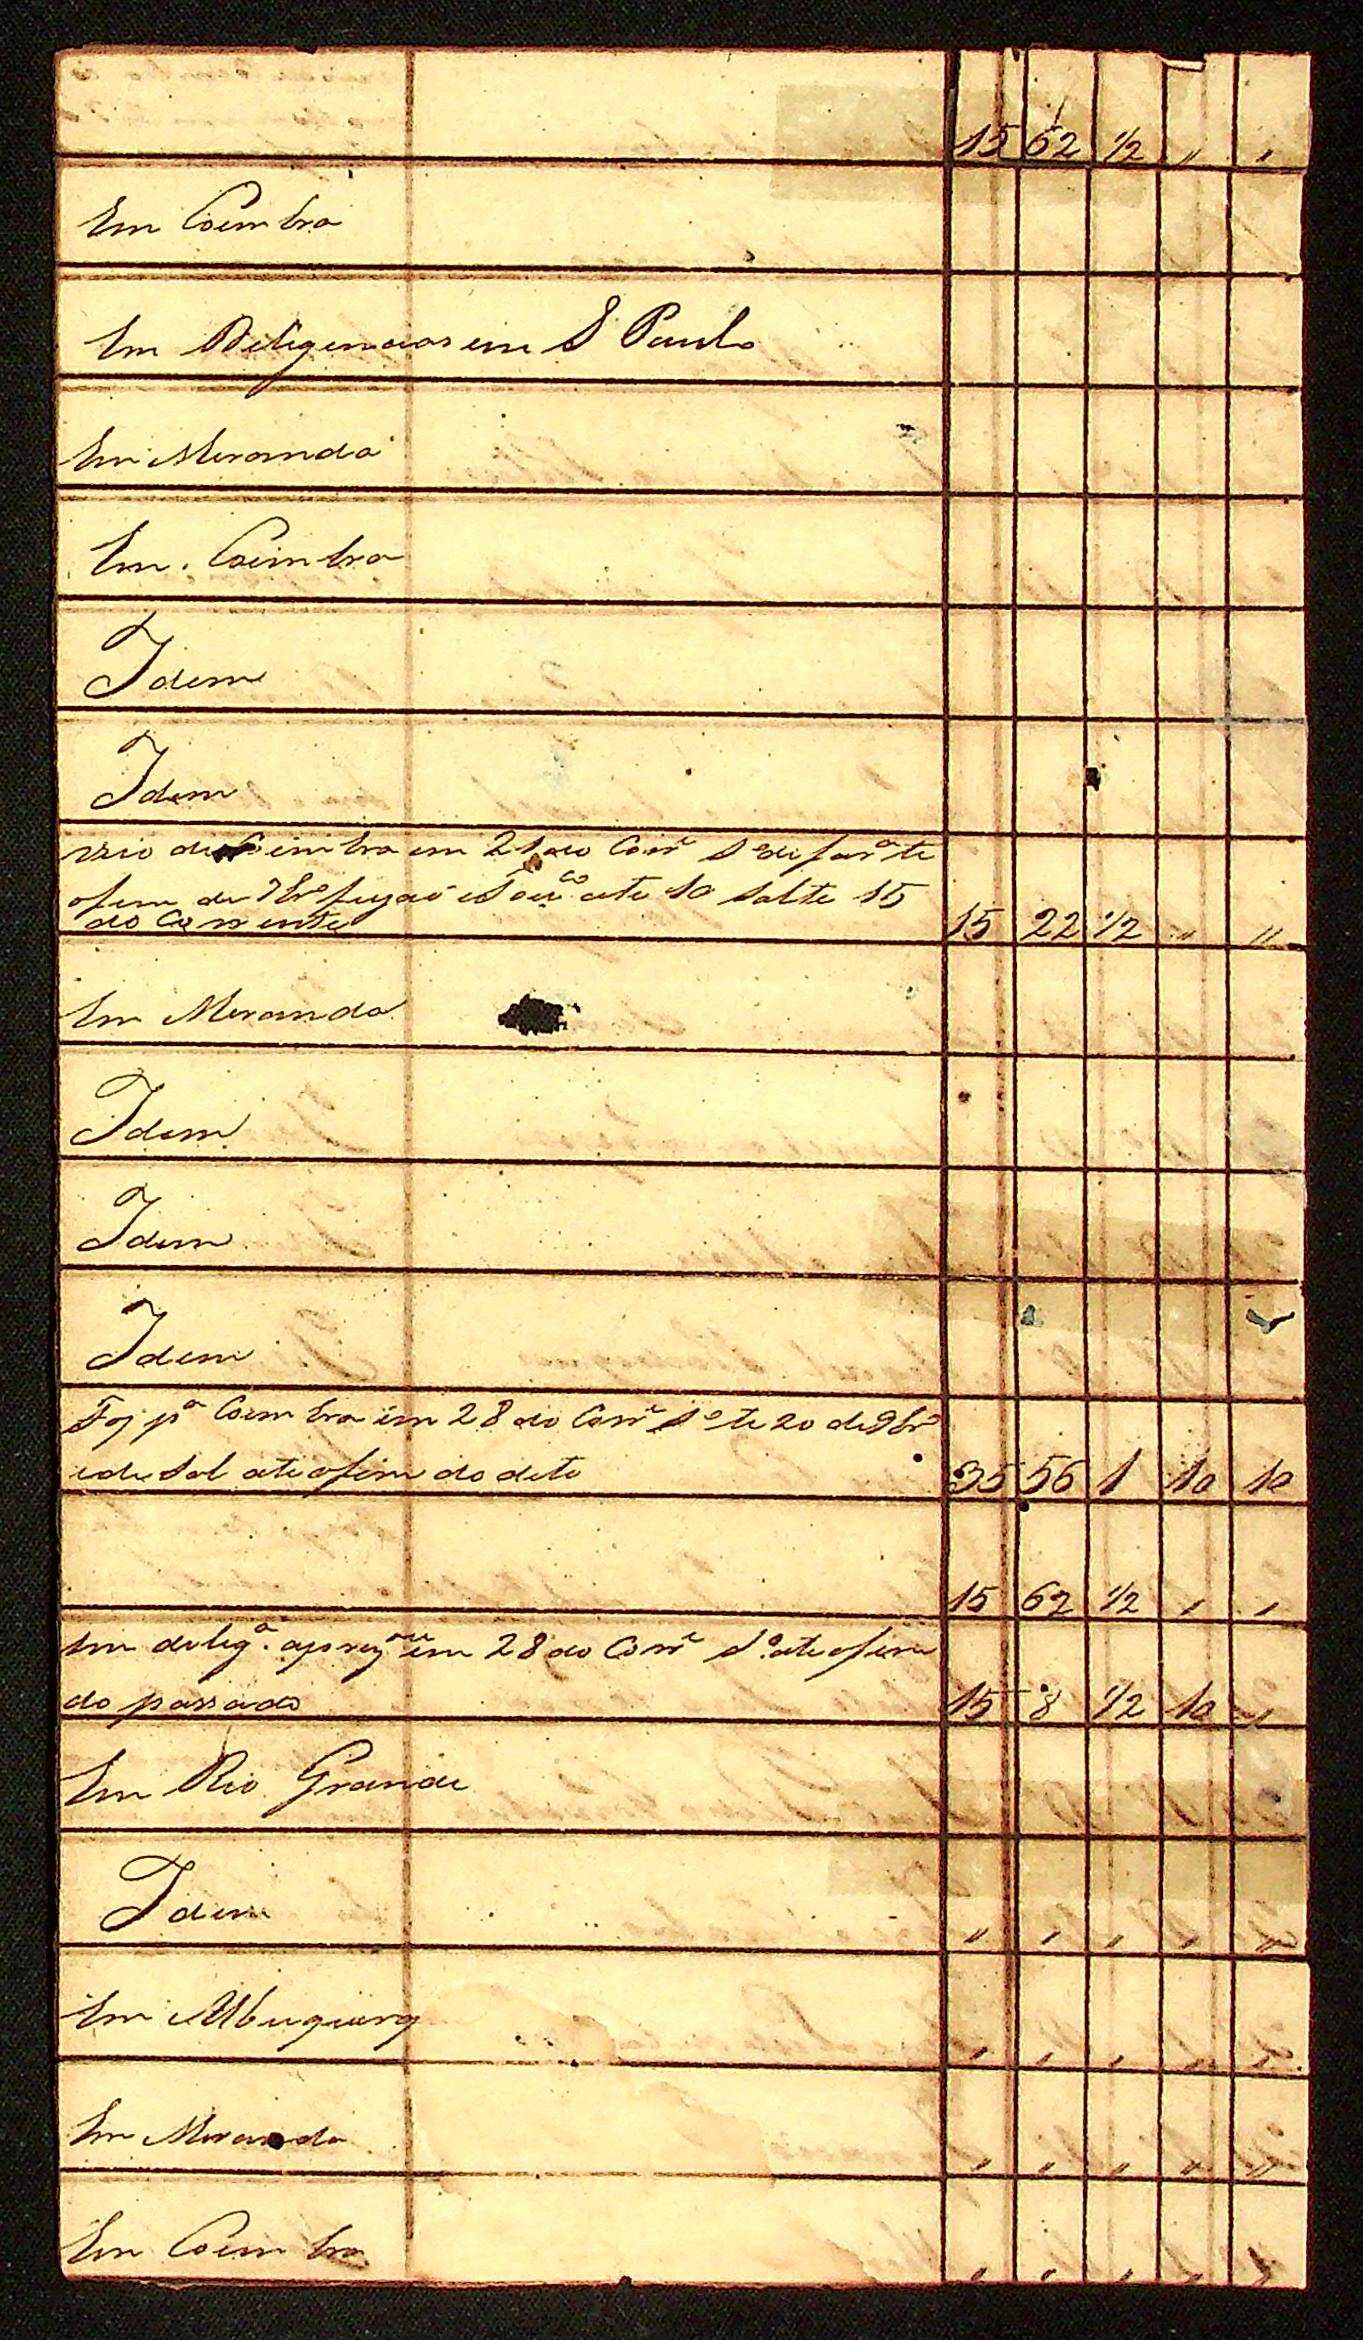 15 62 1/2 " "
Em Coimbra
Em Deligencias em S Paulo
Em Miranda
Em Coimbra
Idem
Idem
veio de Coimbra em 21 do Corr.e
do Corrente 15 22 1/2 " "
Em Miranda
Idem
Idem
Idem
Foj p.a Coimbra em 28 do Corr.e S.o te 20 de 9br.o
e de Sal ate o fim do dito 35 56 1 10 10
15 62 1/2 " "
Em delig.a em 28 do Corr.e S.o ate o fim
do passado 15 8 1/2 10 "
Em Rio Grande
Idem " " " " "
Em Albuquerq " " " " "
Em Miranda " " " " "
Em Coimbra " " " " "